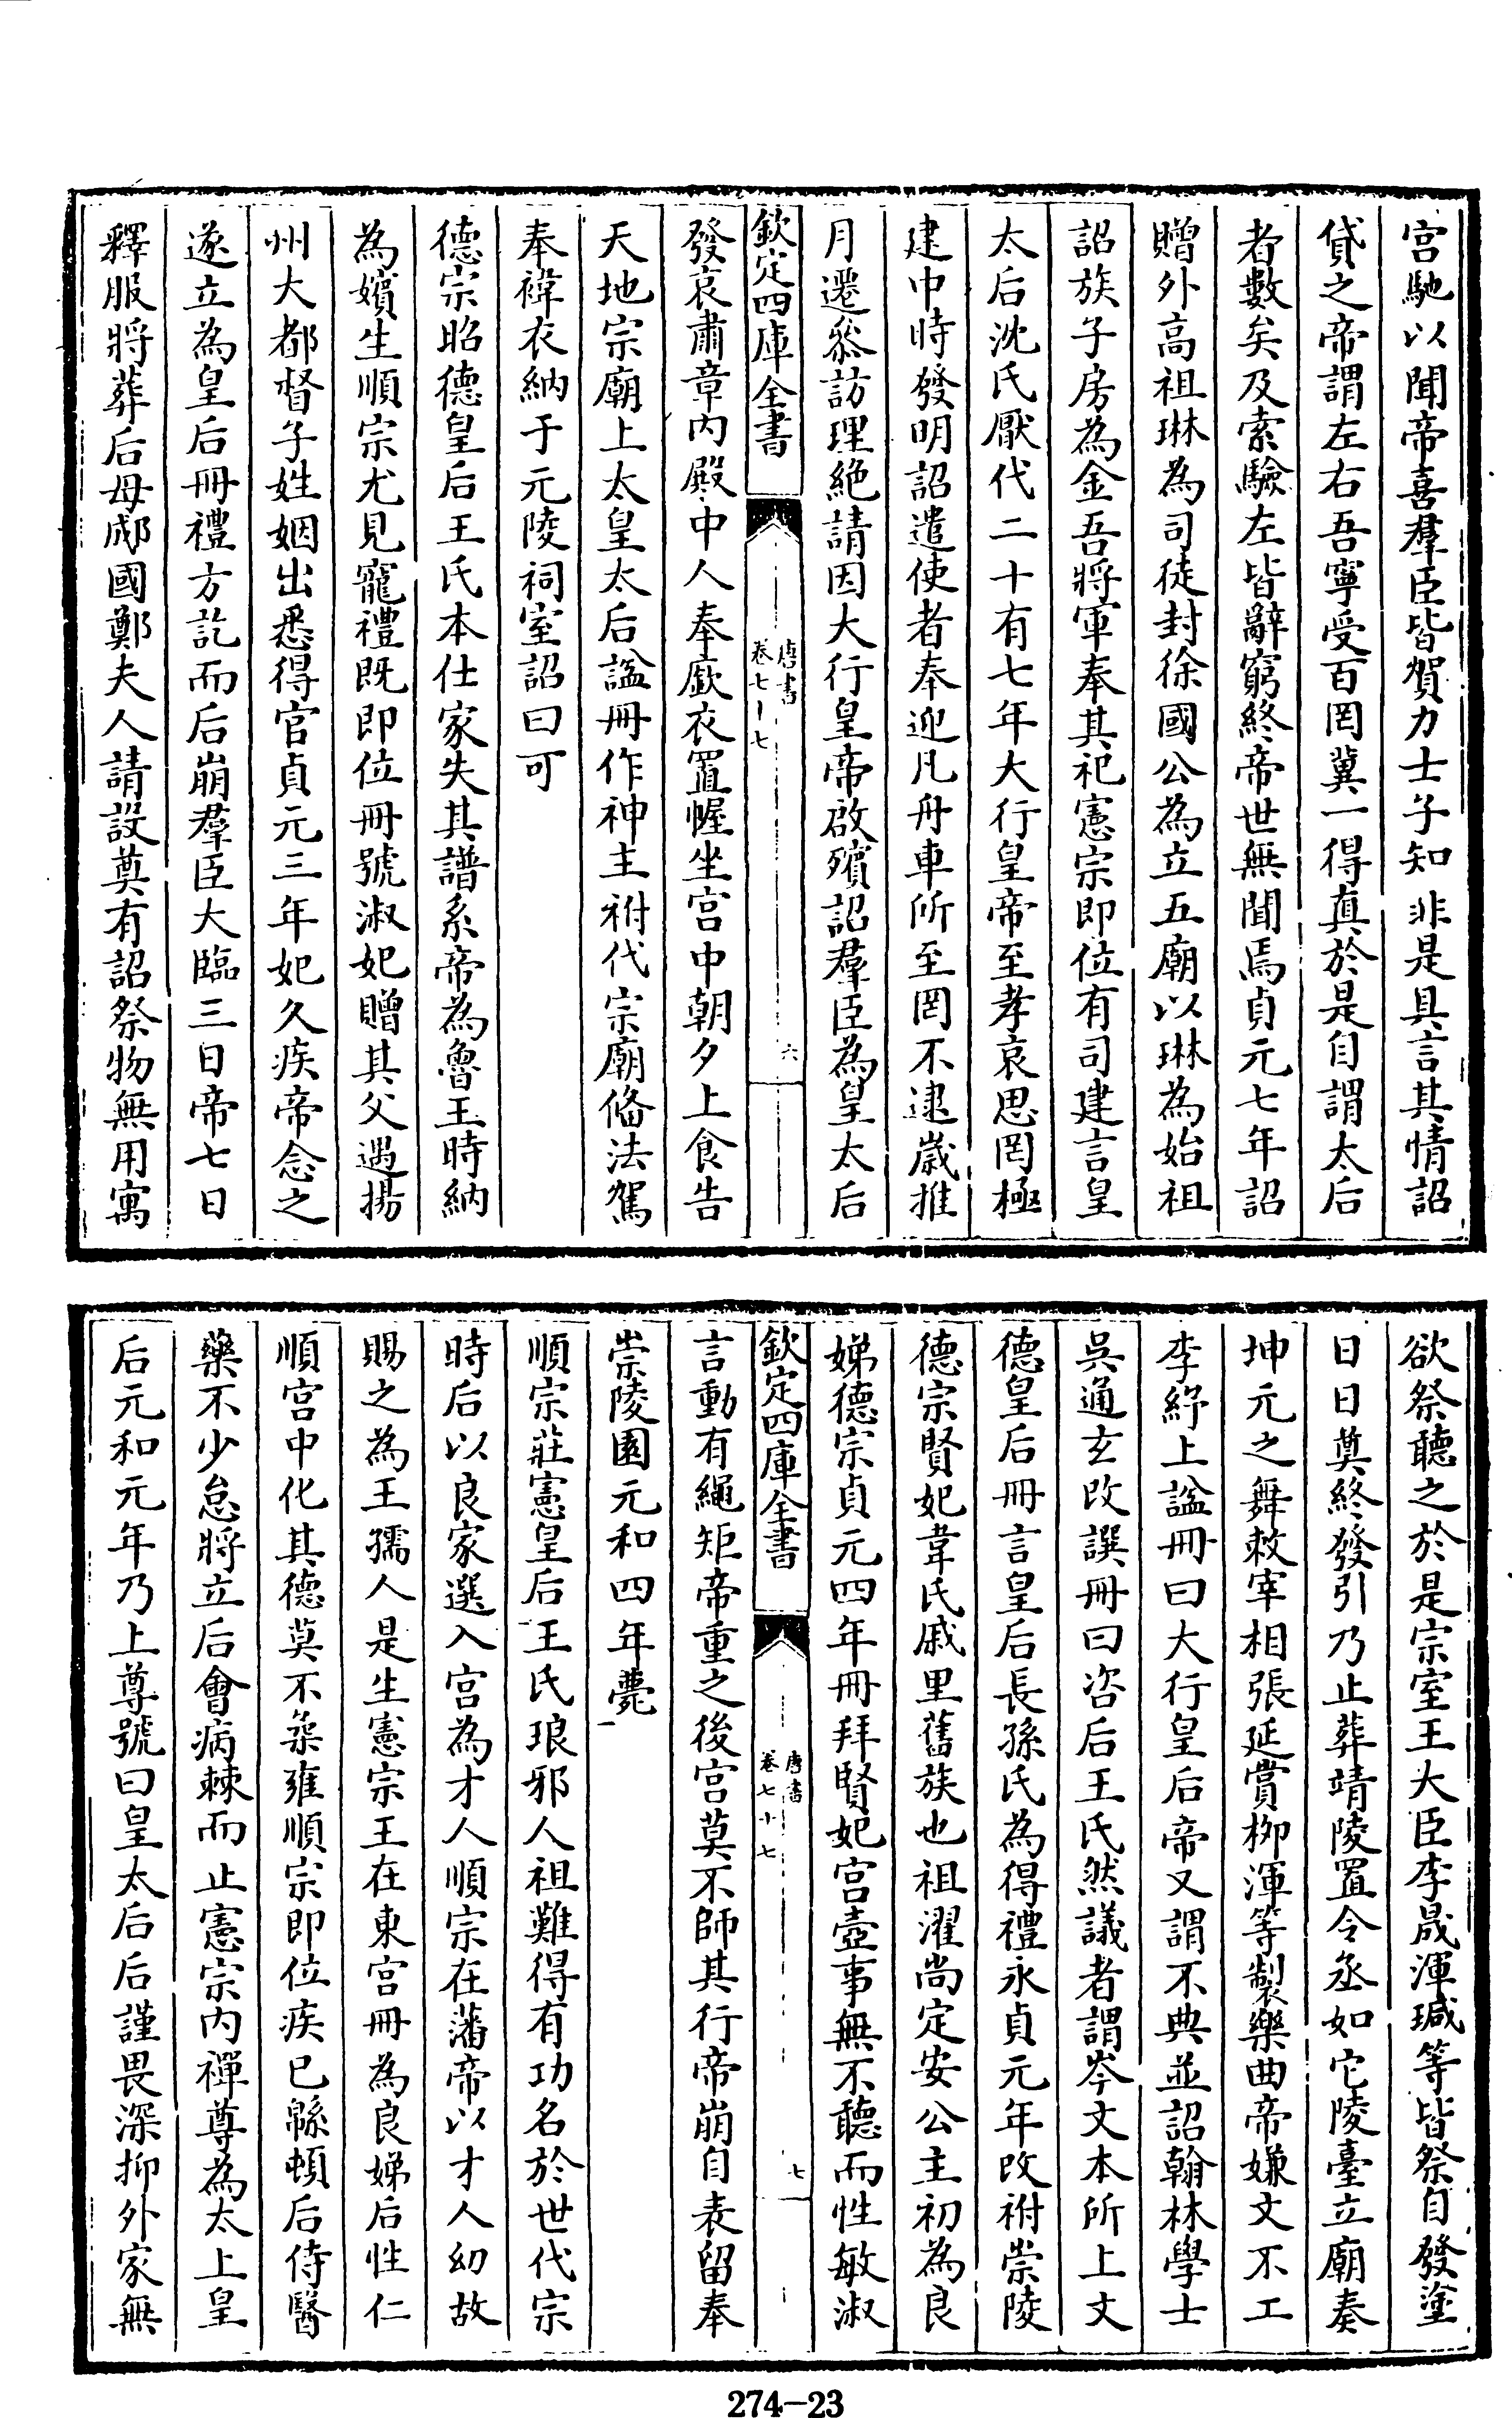 宫馳以聞帝喜羣臣皆賀力士子知非是具言其情詔
貸之帝謂左右吾寧受百罔冀一得真於是自謂太后
者數矣及索驗左皆辭窮終帝世無聞焉貞元七年詔
贈外高祖琳為司徒封徐國公為立五廟以琳為始祖
詔族子房為金吾將軍奉其祀憲宗即位有司建言皇
太后沈氏厭代二十有七年大行皇帝至孝哀思罔極
建中時發明詔遣使者奉迎凡舟車所至罔不逮歲推
月遷叅訪理絶請因大行皇帝啟殯詔羣臣為皇太后
欽定四庫全書
唐書
卷七十七
六
發哀肅章内殿中人奉厭衣置幄坐宫中朝夕上食告
天地宗廟上太皇太后諡冊作神主祔代宗廟脩法駕
奉褘衣納于元陵祠室詔曰可
德宗昭德皇后王氏本仕家失其譜系帝為魯王時納
為嬪生順宗尤見寵禮既即位冊號淑妃贈其父遇揚
州大都督子姓姻出悉得官貞元三年妃久疾帝念之
遂立為皇后冊禮方訖而后崩羣臣大臨三日帝七日
釋服將葬后母郕國鄭夫人請設奠有詔祭物無用寓
欲祭聽之於是宗室王大臣李晟渾瑊等皆祭自發塗
日日奠終發引乃止葬靖陵置令丞如它陵臺立廟奏
坤元之舞敕宰相張延賞柳渾等製樂曲帝嫌文不工
李紓上諡冊曰大行皇后帝又謂不典並詔翰林學士
吳通玄改譔冊曰咨后王氏然議者謂岑文本所上文
德皇后冊言皇后長孫氏為得禮永貞元年改祔崇陵
德宗賢妃韋氏戚里舊族也祖濯尚定安公主初為良
娣德宗貞元四年冊拜賢妃宫壼事無不聽而性敏淑
欽定四庫全書
唐書
卷七十七
七
言動有繩矩帝重之後宫莫不師其行帝崩自表留奉
崇陵園元和四年薨
順宗莊憲皇后王氏琅邪人祖難得有功名於世代宗
時后以良家選入宫為才人順宗在藩帝以才人幼故
賜之為王孺人是生憲宗王在東宫冊為良娣后性仁
順宫中化其德莫不柒雍順宗即位疾已緜頓后侍醫
藥不少怠將立后會病棘而止憲宗内禪尊為太上皇
后元和元年乃上尊號曰皇太后后謹畏深抑外家無
274-23